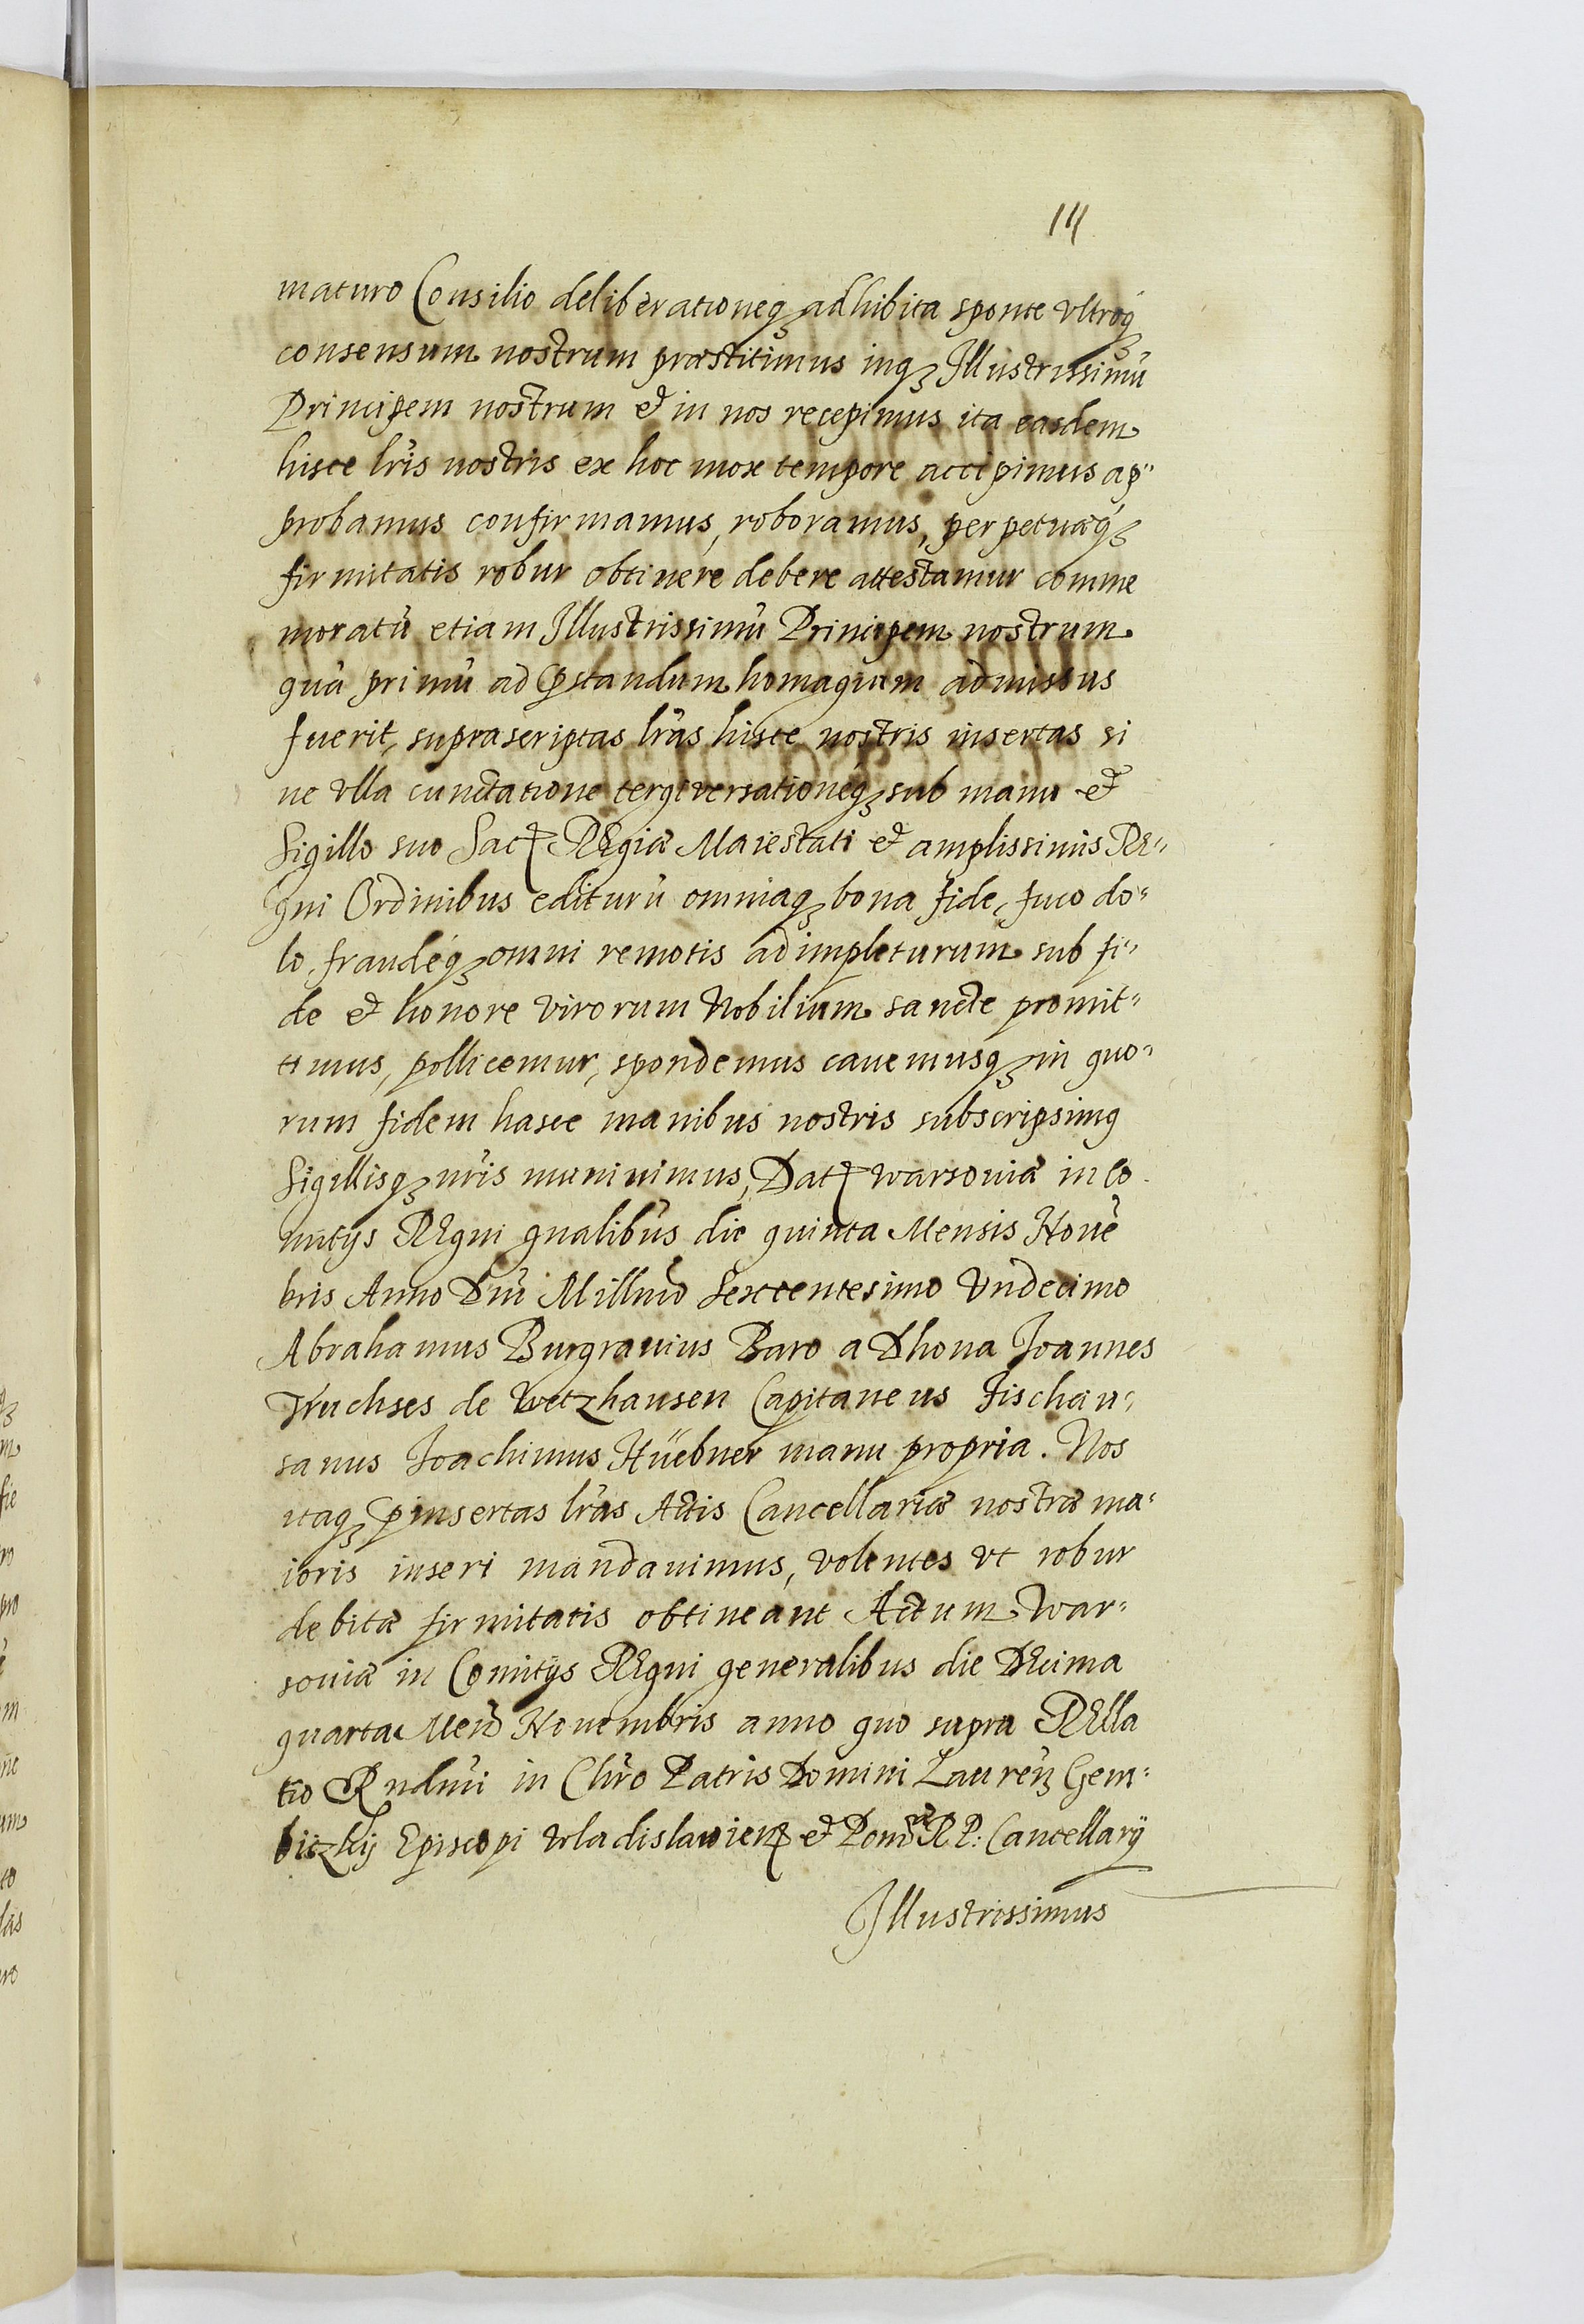 14
maturo Consilio deliberationeq₃ adhibita sponte vltroq₃
consensum nostrum præstitimus inq₃ Illustrissimũ
Principem nostrum et in nos recepimus ita easdem
hisce lr̃is nostris ex hoc mox tempore accipimus ap"
probamus confirmamus, roboramus, perpetuæq₃
firmitatis robur obtinere debere attestamur comme
moratũ etiam Illustrissimũ Principem nostrum
quã primũ ad p̃standum homagium admissus
fuerit, suprascriptas lr̃as hisce nostris insertas si
ne vlla cunctatione tergiversationéq₃ sub manu et
Sigillo suo Sacꝝ REgiæ Maiestati et amplissimis RE"
gni Ordinibus editurũ omniaq₃ bona fide, fuco do"
lo, fraudéq₃ omni remotis adimpleturum sub fi"
de et honore virorum Nobilium sancte promit"
timus, pollicemur, spondemus cauemusq₃ in quo"
rum fidem hasce manibus nostris subscripsimꝗ
Sigillisq₃ nr̃is muniuimus, Datꝝ warsouiæ in Co
mitijs REgni gnalibũs die quinta Mensis Nouẽ
bris Anno Dñi Millmo Sexcentesimo Vndecimo
Abrahamus Burgrauius Baro a Dhona Joannes
Truchses de Wetzhausen Capitaneus Fischau"
sanus Joachimus Hüebner manu propria. Nos
itaq₃ p̃insertas lr̃as Actis Cancellariæ nostræ ma"
ioris inseri mandauimus, volentes vt robur
debitæ firmitatis obtineant Actum War"
souiæ in Comitijs REgni generalibus die DEcima
quarta Mens̃ Nouembris anno quo supra RElla
tio Rndmi in Chr̃o Patris Domini Laurenꝫ Gem"
bitzkij Episcopi Wladislauienꝝ et Pom̃æ R P: Cancellarÿ
Illustrissimus